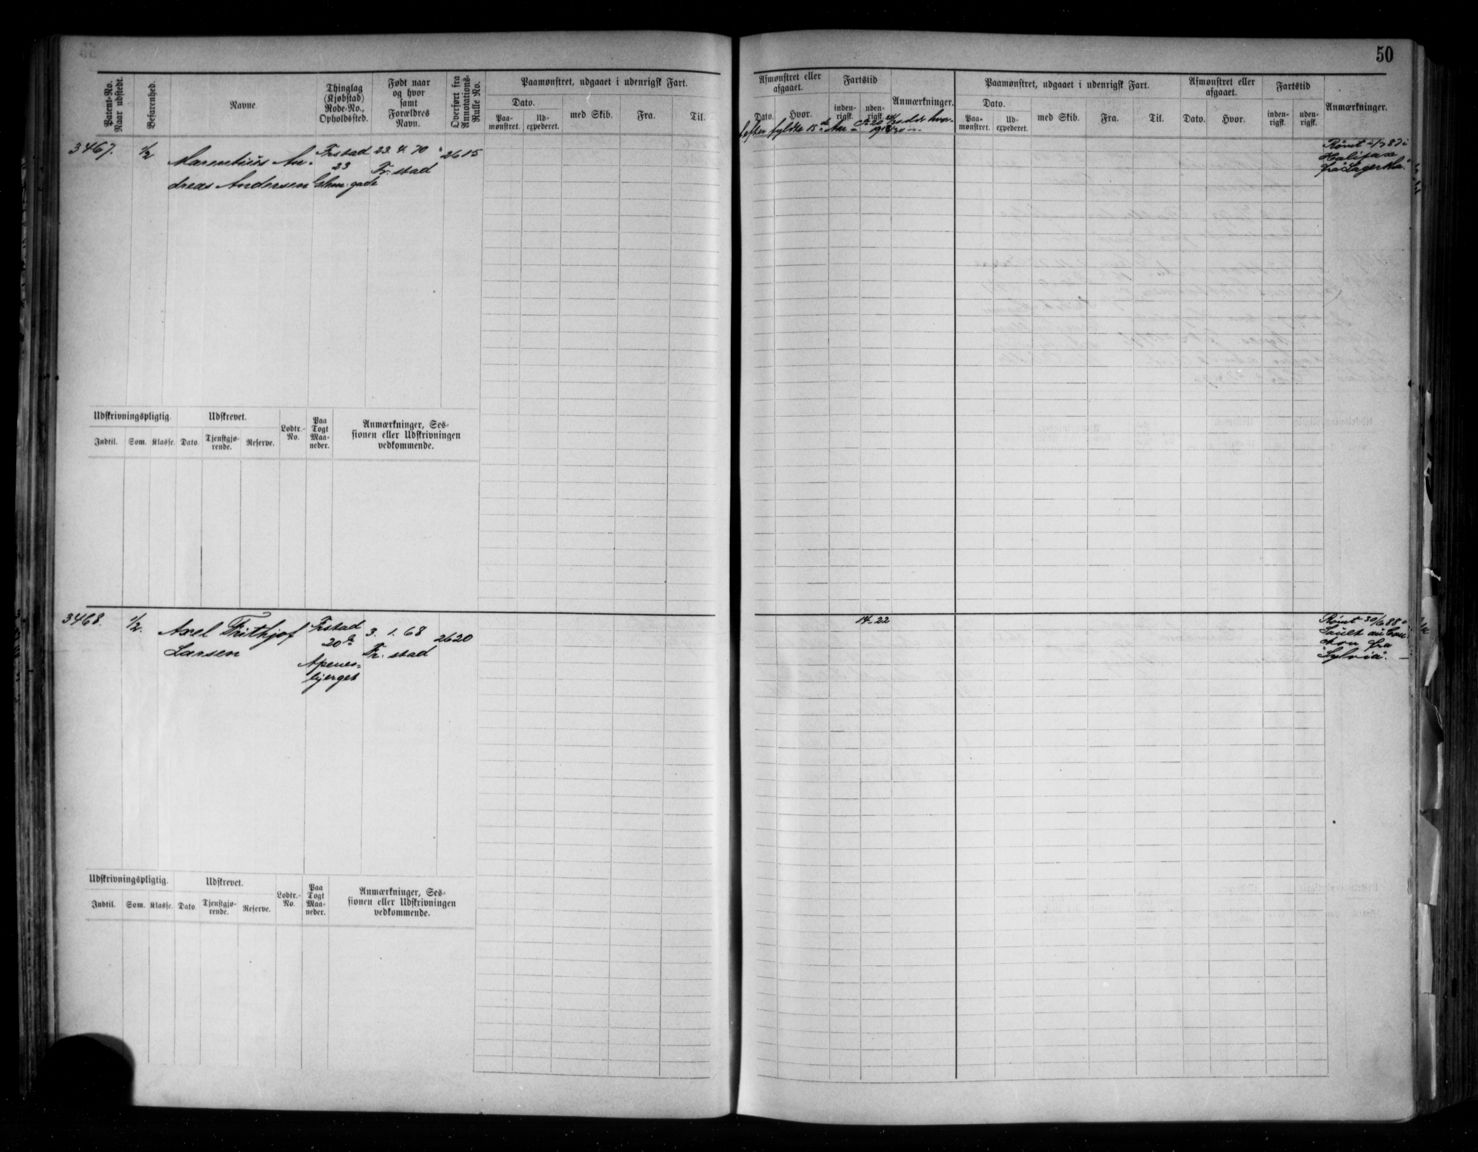 50
Patent-No. Naar udstedt.
Befarenhed.
Navne
Thinglag (Kjøbstad) Rode-No., Opholdssted.
Født naar og hvor samt Forældres Navn.
Overført fra Annotations-Rulle No.
Paamønstret, udgaaet i udenrigsk Fart.
Dato.
Paa-mønstret.
Ud-expederet.
med Skib.
Fra.
Til.
Afmønstret eller afgaaet.
Dato.
Hvor.
Fartstid
inden-rigsk.
uden-rigsk.
Anmærkninger.
Paamønstret, udgaaet i udenrigsk Fart.
Dato.
Paa-mønstret.
Ud-expederet.
med Skib.
Fra.
Til.
Afmønstret eller afgaaet.
Dato.
Hvor.
Fartstid
inden-rigsk.
uden-rigsk.
Anmærkninger.
efter fyldte 15 de
3467. 1/2 Marentius An- Frstad 23. 4. 70 2615
23 Fr. stad
dreas Andersen gade
Rømt
Halifax
fra
Udskrivningspligtig.
Udskrevet.
Indtil.
Som.
Klasse.
Dato.
Tjenstgjø-rende.
Reserve.
Lodtr.-No.
Paa Togt Maa-neder.
Anmærkninger, Ses-
sionen eller Udskrivningen
vedkommende.
3468. 1/2. Axel Frithjof Frstad 3. 1. 68 2620
Larsen 20 Fr. stad
Apenes-
bjerget
14-22
Rømt 30/6 88
fra
Sylvia.
Udskrivningspligtig.
Udskrevet.
Indtil.
Som.
Klasse.
Dato
Tjenstgjø-rende.
Reserve.
Lodtr.-No.
Paa Togt Maa-neder.
Anmærkninger, Ses-
sionen eller Udskrivningen
vedkommende.